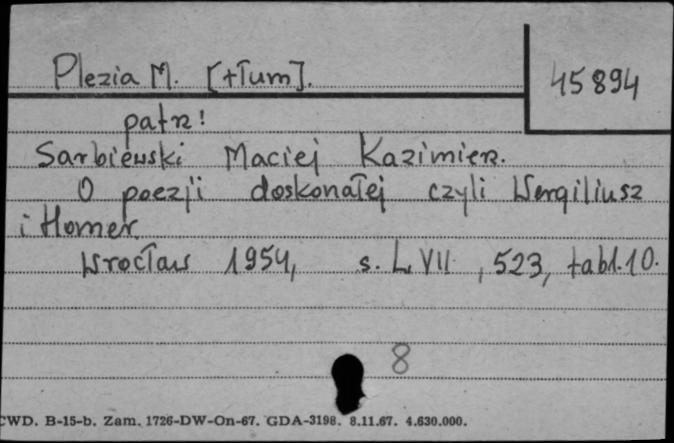 Plezia M. [+Tłum].
45894
patrz!
Sarbiewski Maciej Kazimierz.
O poezji doskonałej czyli Wergiliusz
i Homer
Wrocław 1954, s. LVII, 523, tabl. 10.
8
CWD. B-15-b. Zam. 1726-DW-On-67. GDA-3198. 8.11.67. 4.630.000.